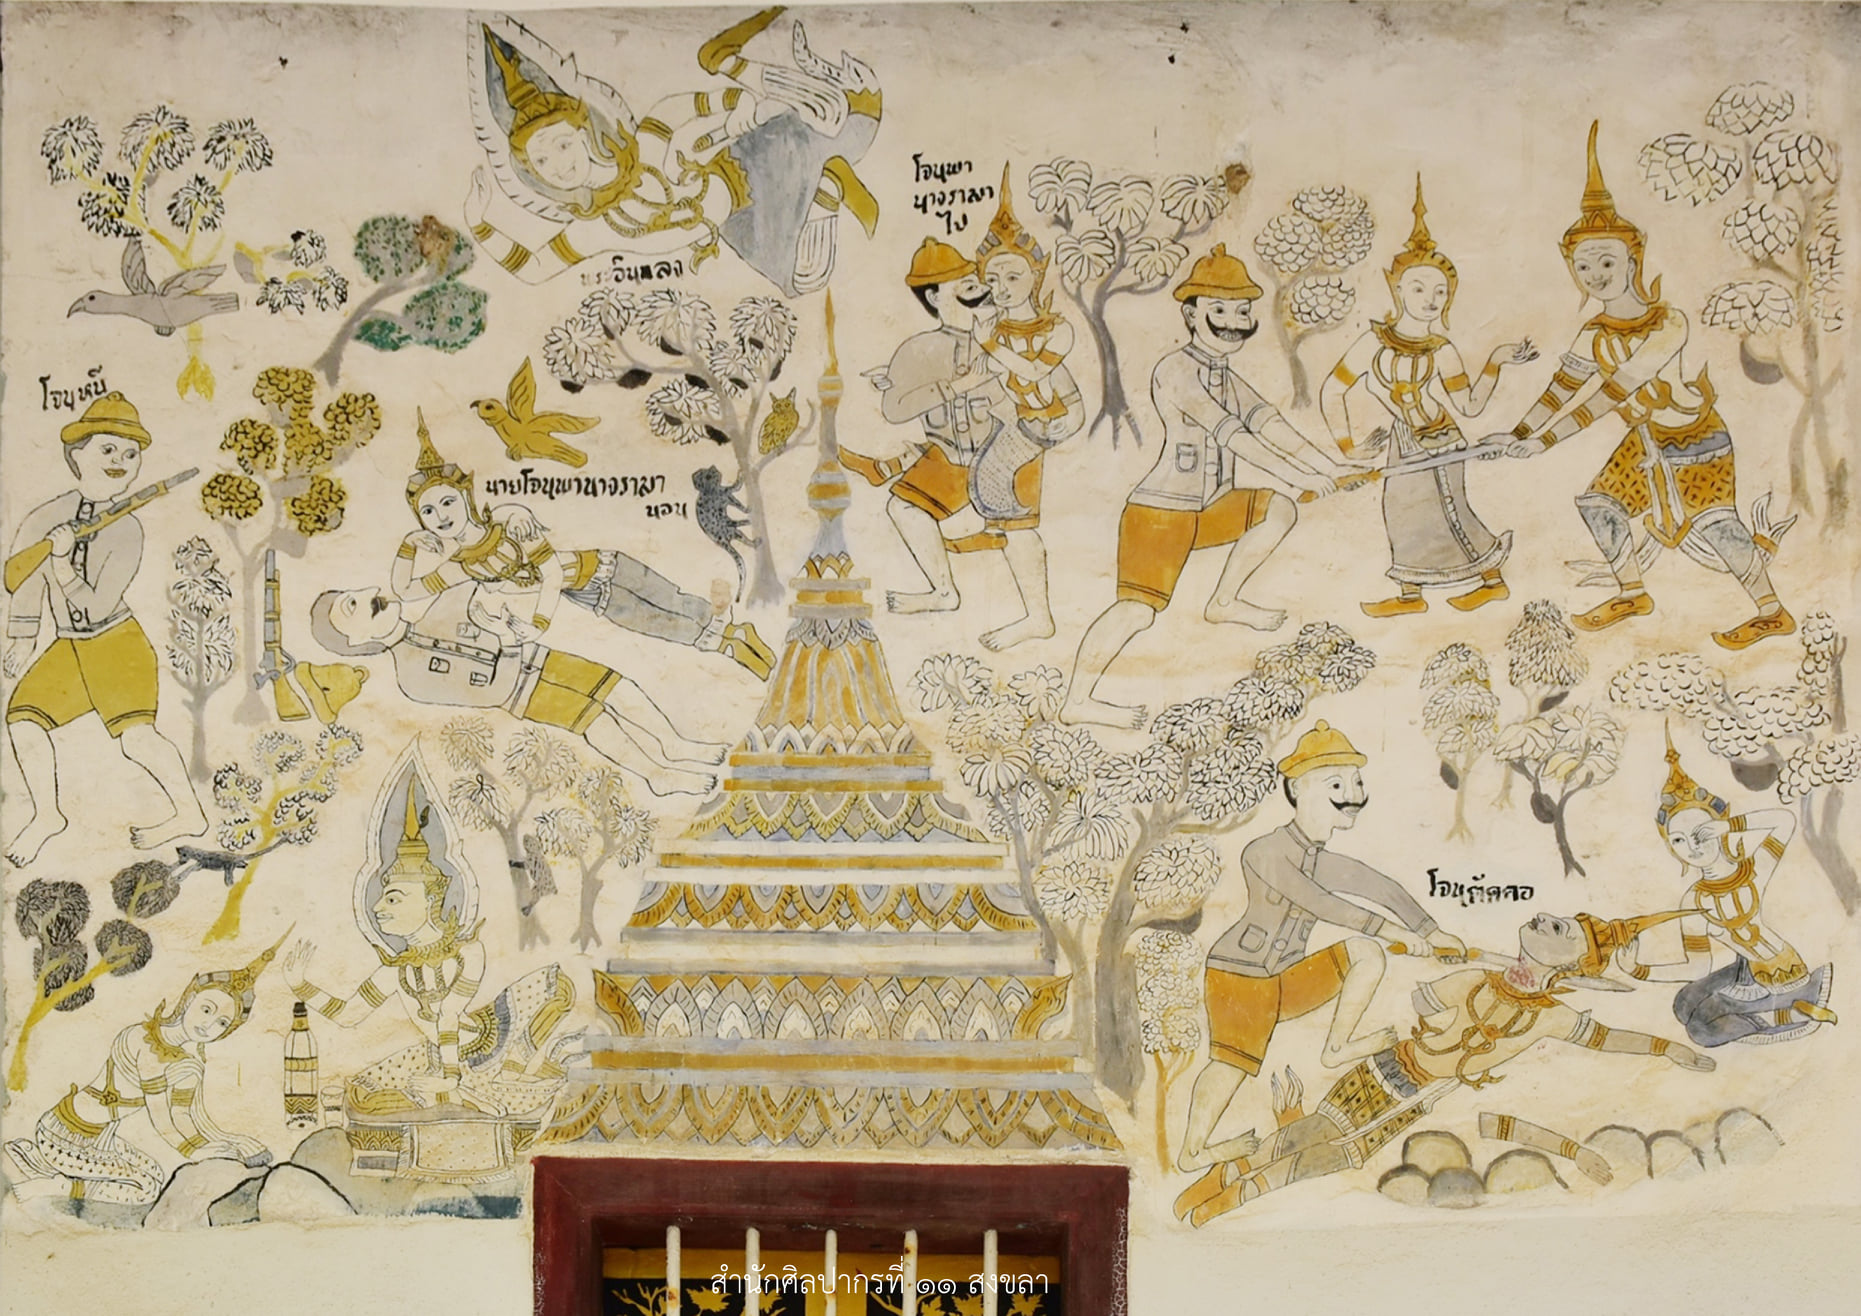 โจนพา
นางรามา
ไป
โจนหนี
นายโจนพานางรามา
นอน
โจนตัดคอ
สำนักศิลปากรที่ ๑๑ สงขลา